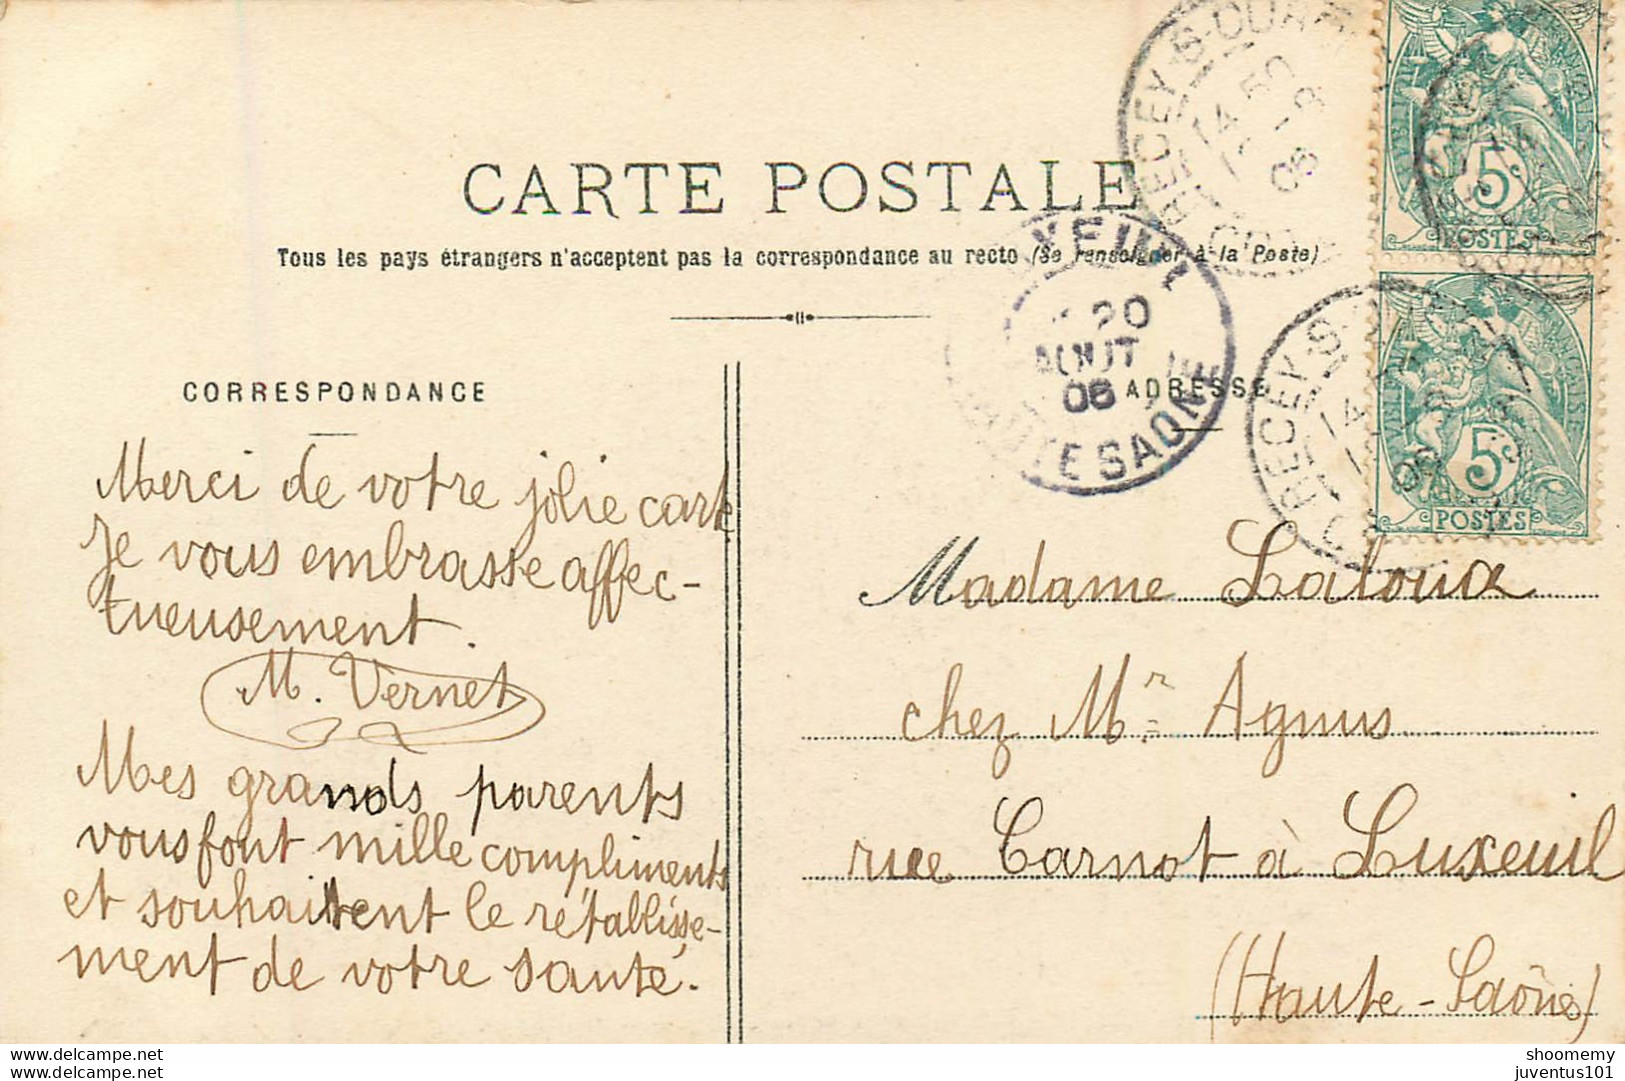 CARTE POSTALE
Tous les pays étrangers n'acceptent pas la correspondance au recto (Se renseigner à la Poste)
CORRESPONDANCE
Merci de votre jolie carte
Je vous embrasse affec-
tueusement.
M. Vernet
Mes grands parents
vous font mille compliments
et souhaitent le rétablisse-
ment de votre santé.
ADRESSE
Madame Laloux
chez Mr Agnus
rue Carnot à Luxeuil
(Haute-Saône)
RECEY-S-OURCE
14 50
06
5
POSTES
RECEY-S
06
5
POSTES
20
AOUT
06
HAUTE SAONE
www.delcampe.net
shoomemy
juventus101